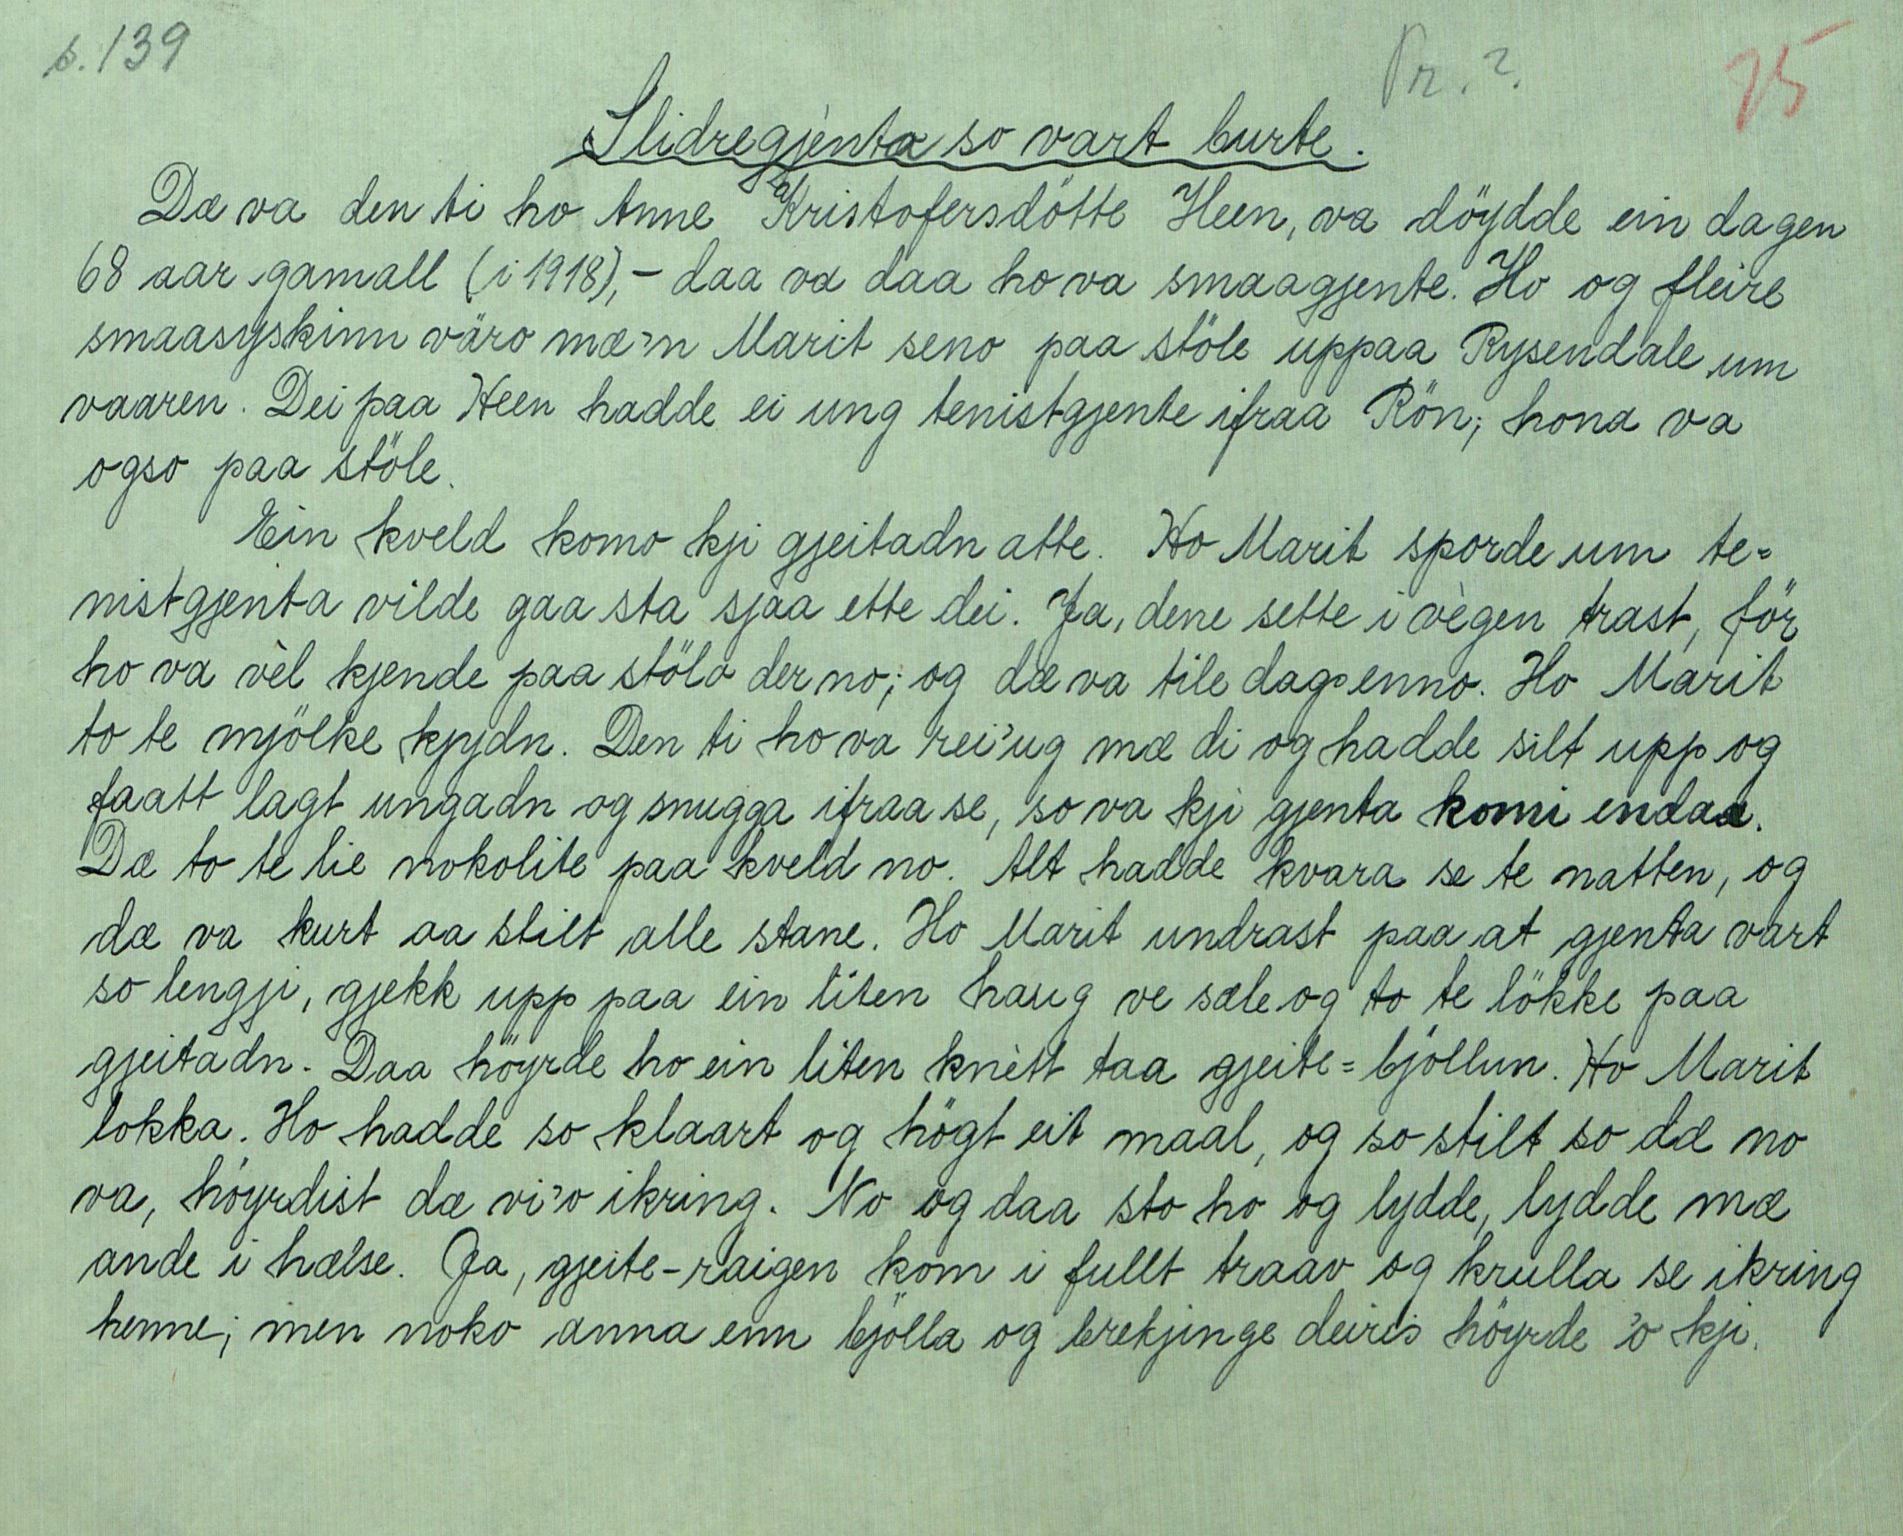 s. 139
Pr. ?.
75
Slidregjènta so vart burte.
Dæ va den ti ho Anne Kristofersdötte Heen, va döydde ein dagen
68 aar gamall (i 1918), – daa va daa ho va smaagjente. Ho og fleire
smaasyskinn väro mæ'n Marit seno paa stöle uppaa Rysendale um
vaaren. Dei paa Heen hadde ei ung tenistgjente ifraa Rön; hona va
ogso paa stöle.
Ein kveld komo kji gjeitadn atte. Ho Marit sporde um te=
nistgjenta vilde gaa sta sjaa ette dei. Ja, dene sette i vègen trast, för
ho va vèl kjende paa stölo der no; og dæ va tile dags enno. Ho Marit
to te mjölke kjydn. Den ti ho va rei'ug mæ di og hadde silt upp og
faatt lagt ungadn og snugga ifraa se, so va kji gjenta komi endaa.
Dæ to te lie nokolite paa kveld no. Alt hadde kvara se te natten, og
dæ va kurt aa stilt alle stane. Ho Marit undrast paa at gjenta vart
so lengji, gjekk upp paa ein liten haug ve sæle og to te lökke paa
gjeitadn. Daa höyrde ho ein liten knètt taa gjeite=bjöllun. Ho Marit
lokka. Ho hadde so klaart og högt eit maal, og so stilt so dæ no
va, höyrdist dæ vi'o ikring. No og daa sto ho og lydde, lydde mæ
ande i hælse. Ja, gjeite-raigen kom i fullt traav og krulla se ikring
henne; men noko anna enn bjölla og brekjinge deiris höyrde 'o kji.